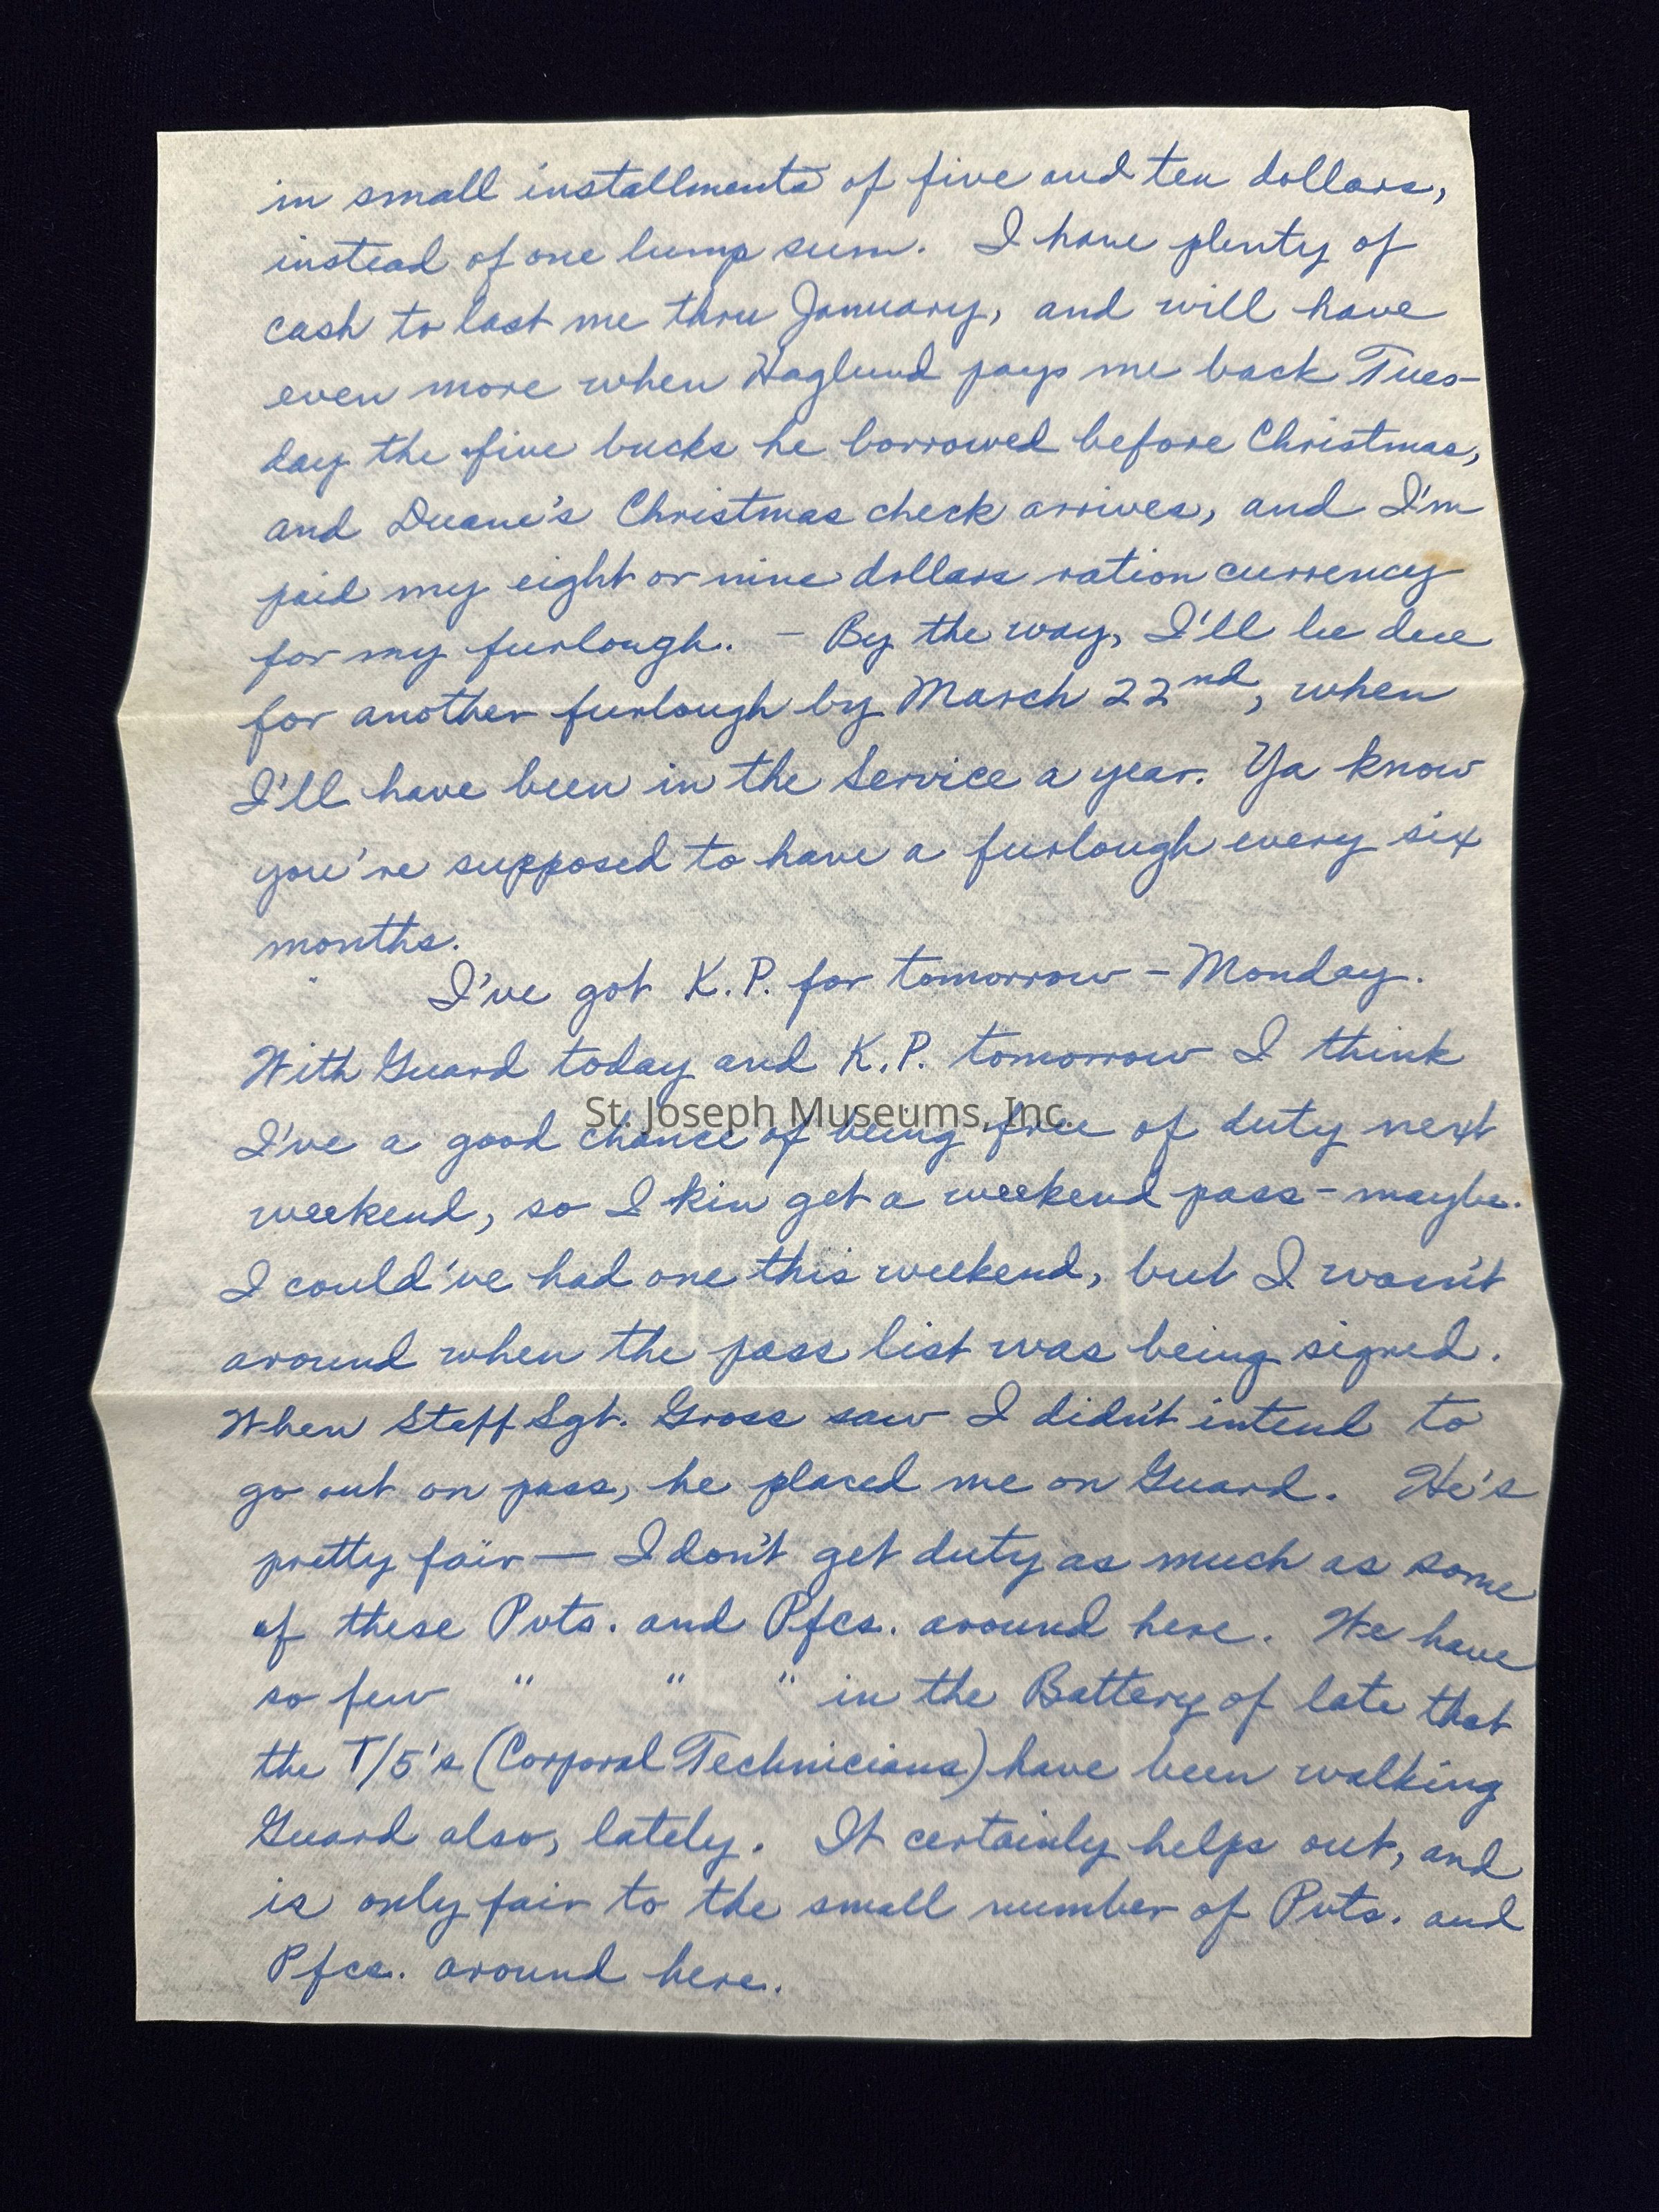 in small installments of five and ten dollars,
instead of one lump sum. I have plenty of
cash to last me thru January, and will have
even more when Haglund pays me back Tues-
day the five bucks he borrowed before Christmas,
and Duane's Christmas check arrives, and I'm
paid my eight or nine dollars ration currency
for my furlough. – By the way, I'll be due
for another furlough by March 22nd, when
I'll have been in the Service a year. Ya know
you're supposed to have a furlough every six
months.
I've got K.P. for tomorrow – Monday.
With Guard today and K.P. tomorrow I think
St. Joseph Museums, Inc.
I've a good chance of being free of duty next
weekend, so I kin get a weekend pass – maybe.
I could've had one this weekend, but I wasn't
around when the pass list was being signed.
When Staff Sgt. Gross saw I didn't intend to
go out on pass, he placed me on Guard. He's
pretty fair — I don't get duty as much as some
of these Pvts. and Pfcs. around here. We have
so few " " " in the Battery of late that
the T/5's (Corporal Technicians) have been walking
Guard also, lately. It certainly helps out, and
is only fair to the small number of Pvts. and
Pfcs. around here.